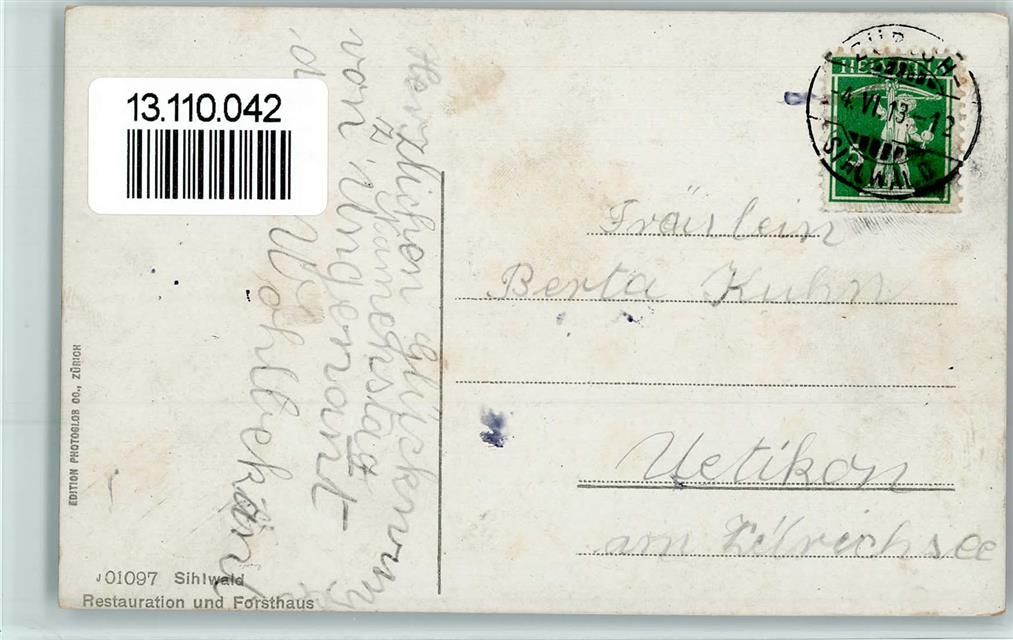 13.110.042
Herzlichen Glückwunsch
z. Namenstag
von Ungenant
d. Wohlbekannt
EDITION PHOTOGLOB CO., ZÜRICH
J 01097 Sihlwald
Restauration und Forsthaus
HELVETIA
4. VI. 13.-12
SIHLWALD
5
Fräulein
Berta Kuhn
Uetikon
am Zürichsee